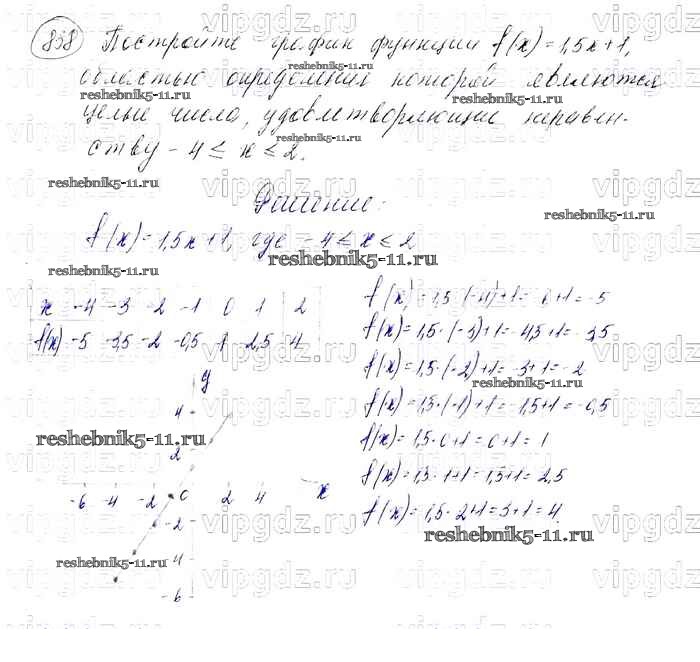 858 Постройте график функции f(x)=1,5x+1,
областью определения которой являются
целые числа, удовлетворяющие неравен-
ству -4 ≤ x ≤ 2.
Решение:
f(x)=1,5x+1, где -4 ≤ x ≤ 2
x -4 -3 -2 -1 0 1 2
f(x) -5 -3,5 -2 -0,5 1 2,5 4
f(x)=1,5·(-4)+1=-6+1=-5
f(x)=1,5·(-3)+1=-4,5+1=-3,5
f(x)=1,5·(-2)+1=-3+1=-2
f(x)=1,5·(-1)+1=-1,5+1=-0,5
f(x)=1,5·0+1=0+1=1
f(x)=1,5·1+1=1,5+1=2,5
f(x)=1,5·2+1=3+1=4.
y
4
2
-6 -4 -2 0 2 4 x
-2
-4
-6
reshebnik5-11.ru
vipgdz.ru